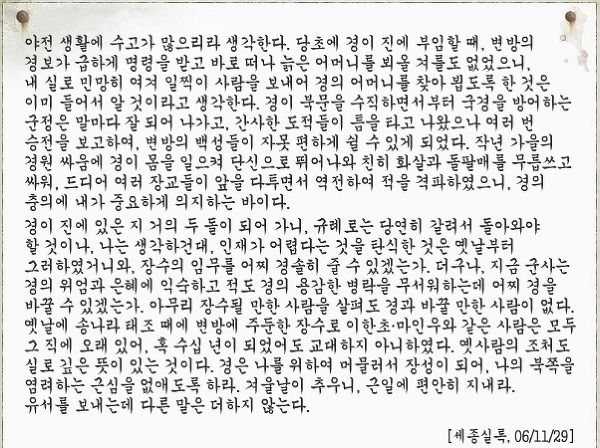 야전 생활에 수고가 많으리라 생각한다. 당초에 경이 진에 부임할 때, 변방의
경보가 급하게 명령을 받고 바로 떠나 늙은 어머니를 뵈올 겨를도 없었으니,
내 실로 민망히 여겨 일찍이 사람을 보내어 경의 어머니를 찾아 뵙도록 한 것은
이미 들어서 알 것이라고 생각한다. 경이 북문을 수직하면서부터 국경을 방어하는
군정은 말마다 잘 되어 나가고, 간사한 도적들이 틈을 타고 나왔으나 여러 번
승전을 보고하여, 변방의 백성들이 자못 편하게 쉴 수 있게 되었다. 작년 가을의
경원 싸움에 경이 몸을 일으켜 단신으로 뛰어나와 친히 화살과 돌팔매를 무릅쓰고
싸워, 드디어 여러 장교들이 앞을 다투면서 역전하여 적을 격파하였으니, 경의
충의에 내가 중요하게 의지하는 바이다.
경이 진에 있은 지 거의 두 돌이 되어 가니, 규례로는 당연히 갈려서 돌아와야
할 것이나, 나는 생각하건대, 인재가 어렵다는 것을 탄식한 것은 옛날부터
그러하였거니와, 장수의 임무를 어찌 경솔히 줄 수 있겠는가. 더구나, 지금 군사는
경의 위엄과 은혜에 익숙하고 적도 경의 용감한 병략을 무서워하는데 어찌 경을
바꿀 수 있겠는가. 아무리 장수될 만한 사람을 살펴도 경과 바꿀 만한 사람이 없다.
옛날에 송나라 태조 때에 변방에 주둔한 장수로 이한초·마인우와 같은 사람은 모두
그 직에 오래 있어, 혹 수십 년이 되었어도 교대하지 아니하였다. 옛사람의 조처도
실로 깊은 뜻이 있는 것이다. 경은 나를 위하여 머물러서 장성이 되어, 나의 북쪽을
염려하는 근심을 없애도록 하라. 겨울날이 추우니, 근일에 편안히 지내라.
유서를 보내는데 다른 말은 더하지 않는다.
[세종실록, 06/11/29]